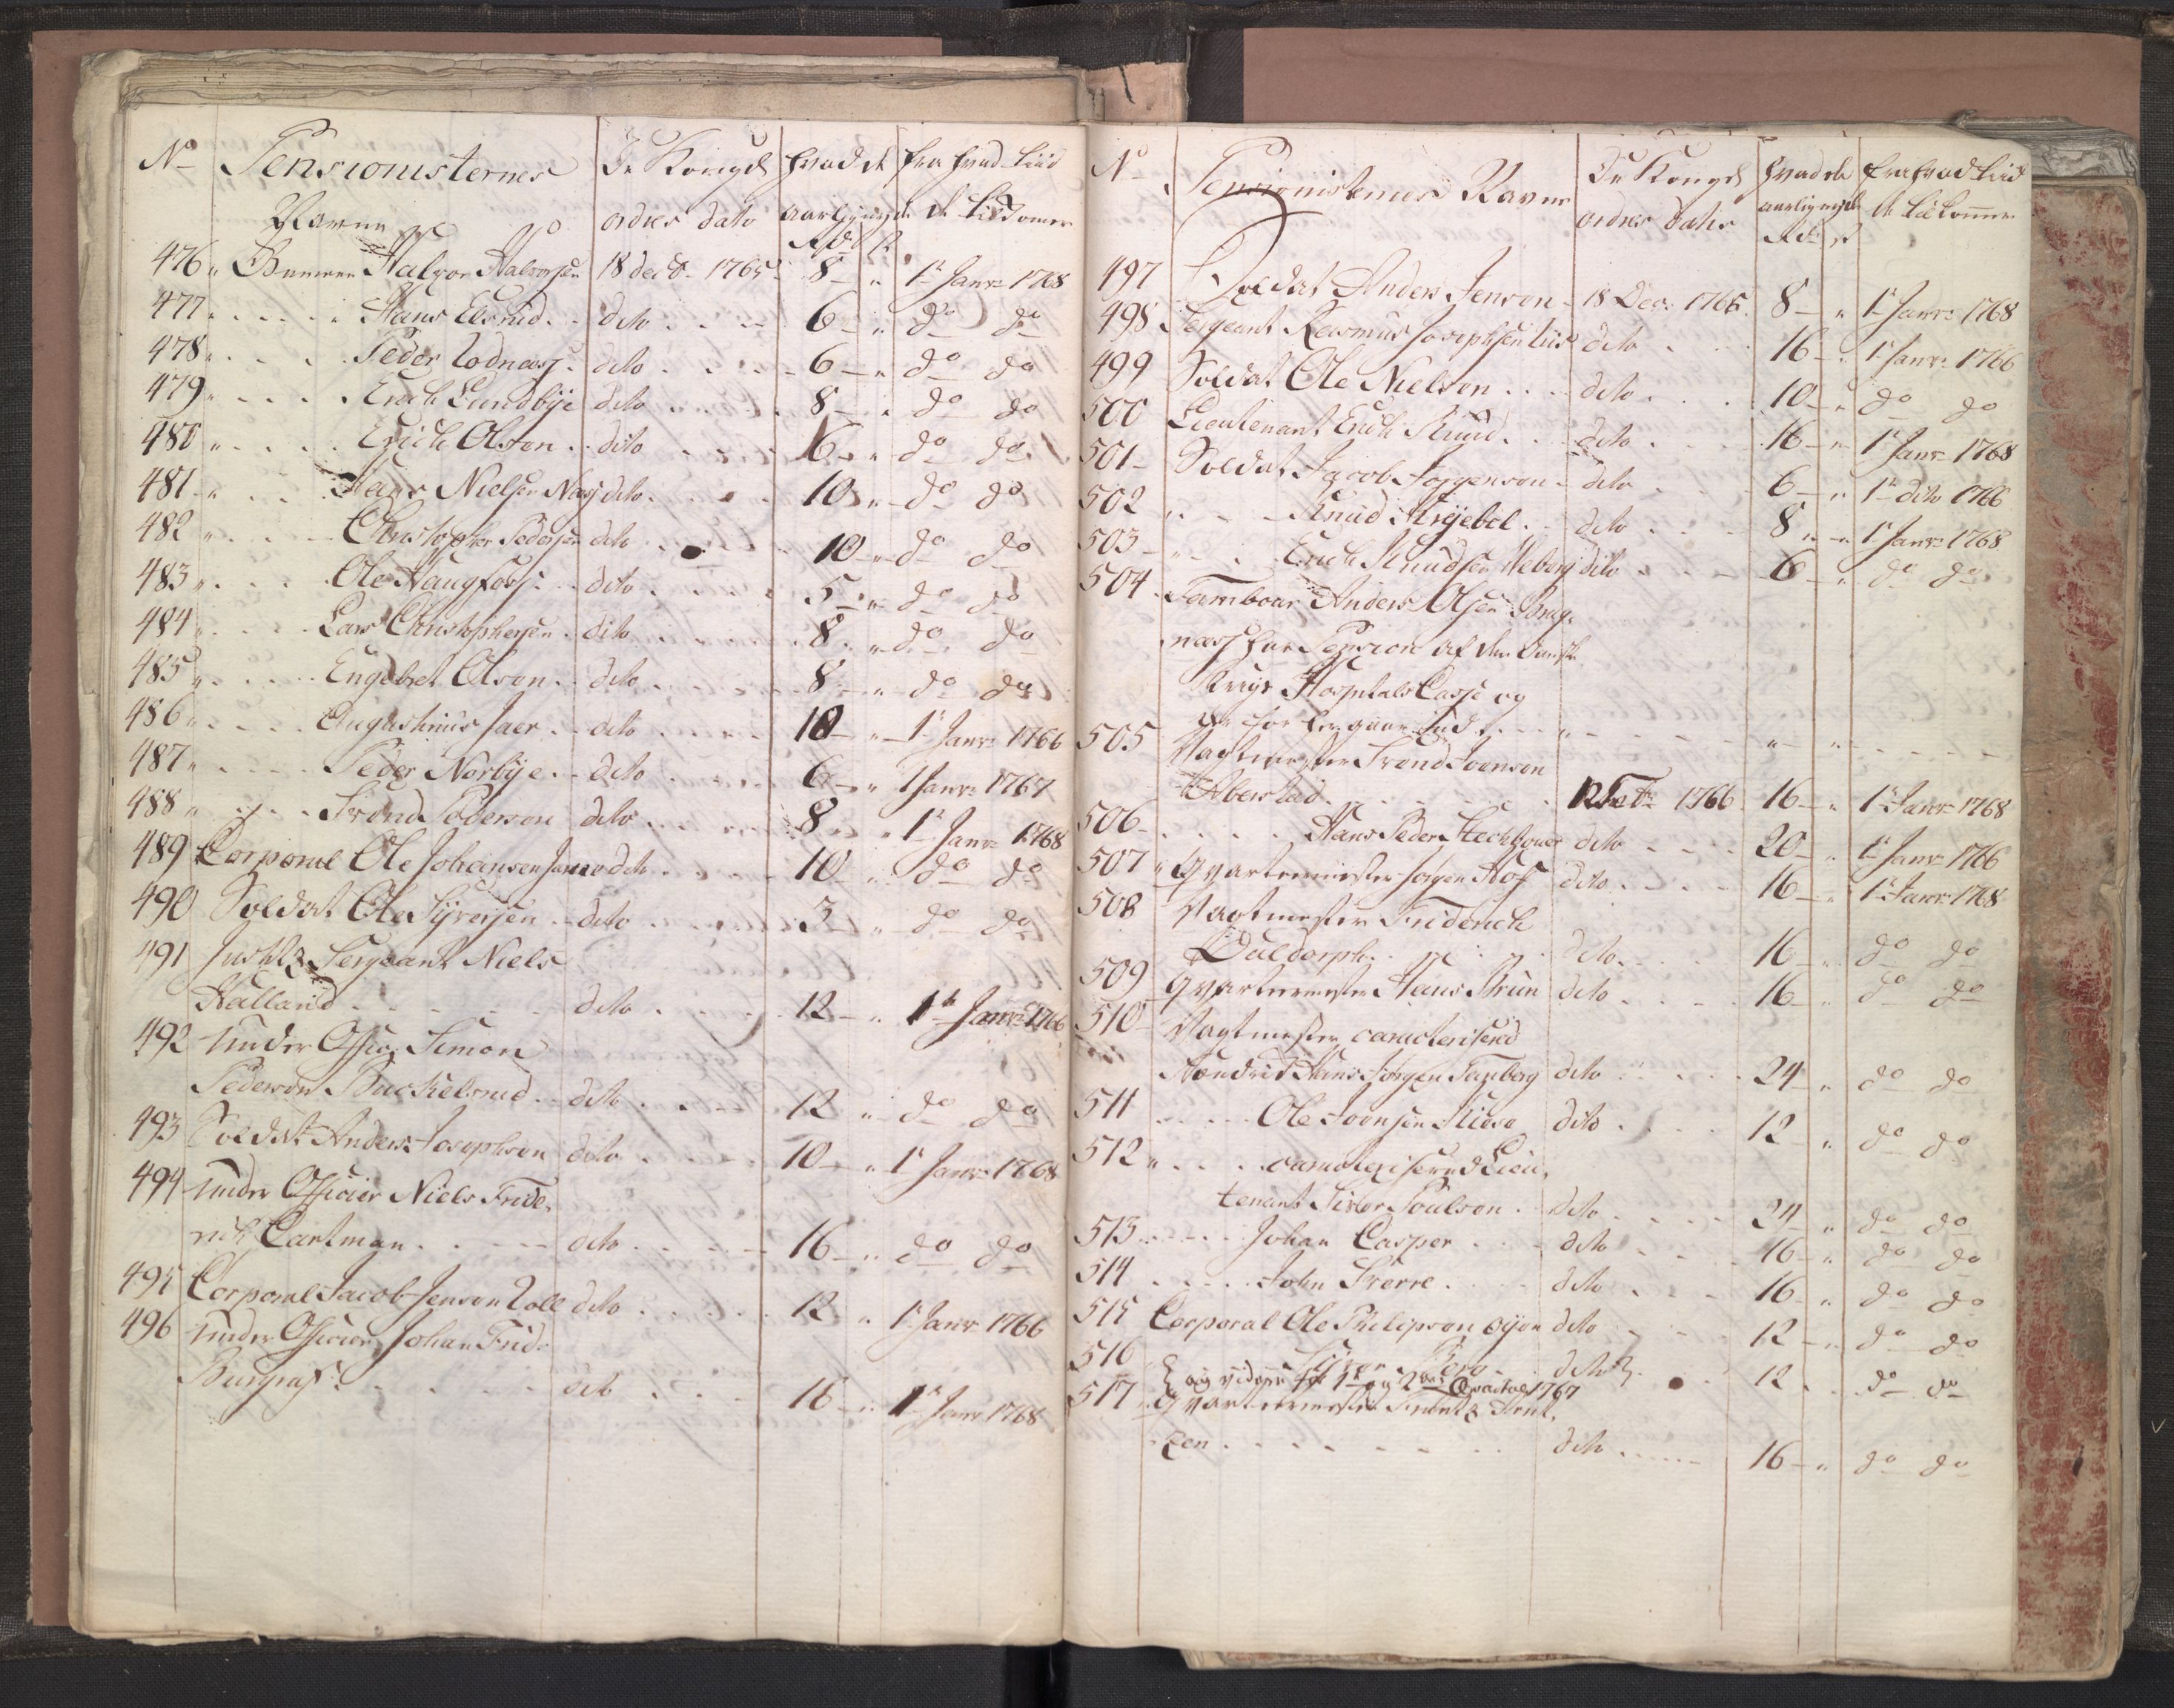 No Pensionisternes De Kongel hvad de fra hvad tiid
Navne ordres dato aarlig nyde de tilkomer
Rd ß
476 " Halvor Halvorsen 18 decb. 1765 8 " 1t Janr 1768
477 " Hans Elsrud dito 6 " do do
478 " Peder Lodnæss dito 6 " do do
479 " Erich Lundbye dito 8 " do do
480 " Erich Olsen dito 6 " do do
481 " Hans Nielsen Næss dito 10 " do do
482 " Christopher Pedersen dito 10 " do do
483 " Ole Haugfoss dito 5 " do do
484 " Lars Christophersen dito 8 " do do
485 " Engebret Olsen dito 8 " do do
486 " Augustinus Jaer dito 10 " 1t Janr 1766
487 " Peder Norbye dito 6 " 1 Janr 1767
488 " Trond Pedersen dito 8 " 1t Janr 1768
489 Corporal Ole Johansen dito 10 " do do
490 Soldat Ole Syversen dito 3 " do do
491 Justitz Sergeant Niels
Halland dito 12 " 1t Janr 1766
492 Under Offic: Simon
Pedersen Buckelsrud dito 12 " do do
493 Soldat Anders Josephsen dito 10 " 1t Janr 1768
494 Under Officier Niels Fride-
rich Cartman dito 16 " do do
495 Corporal Jacob Jensen Toll dito 12 " 1t Janr 1766
496 Under Officeer Johan Frid:
dito 16 " 1t Janr 1768
No Pensionisternes Navne De Kongel hvad de fra hvad tiid
ordres dato aarlig nyde de tilkommer
Rd ß
497 Soldat Anders Jensen 18 Dec: 1765 8 " 1t Janr 1768
498 Sergeant Rasmus Josephsen dito 16 " 1t Janr 1766
499 Soldat Ole Nielsen dito 10 " do do
500 Lieutenant Erich Ruud dito 16 " 1t Janr 1768
501 Soldat Jacob Joggensen dito 6 " 1t dito 1766
502 " Knud dito 8 " 1t Janr 1768
503 " Erich Knudsen dito 6 " do do
504 Tambour Anders Olsen Brag-
næss har Pension af den Danske
Krigs Hospitals Casse og
her for ud " " "
505 Vagtmester Trond Joensen
Aberstad 12 1766 16 " 1t Janr 1768
506 Hans Peder Stockfleth dito 20 " 1t Janr 1766
507 " Qvarteermester Jorgen Hof dito 16 " 1t Janr 1768
508 Vagtmester Friderich
Duldorph dito 16 " do do
509 Qvartermester Hans Bruun dito 16 " do do
510 Vagtmester caracterisered
Hans Jorgen Tanberg dito 24 " do do
511 Ole Joensen dito 12 " do do
512 " caracterisered Lieu-
tenant Siver Poulsen dito 24 " do do
513 Johan Casper dito 16 " do do
514 John Sterre dito 16 " do do
515 Corporal Ole Philipsen dito 12 " do do
516 Siver Berg dito 12 do do
og vidre for 1t og 2det Qvartal 1767
517 Qvarteermester
zen dito 16 " do do